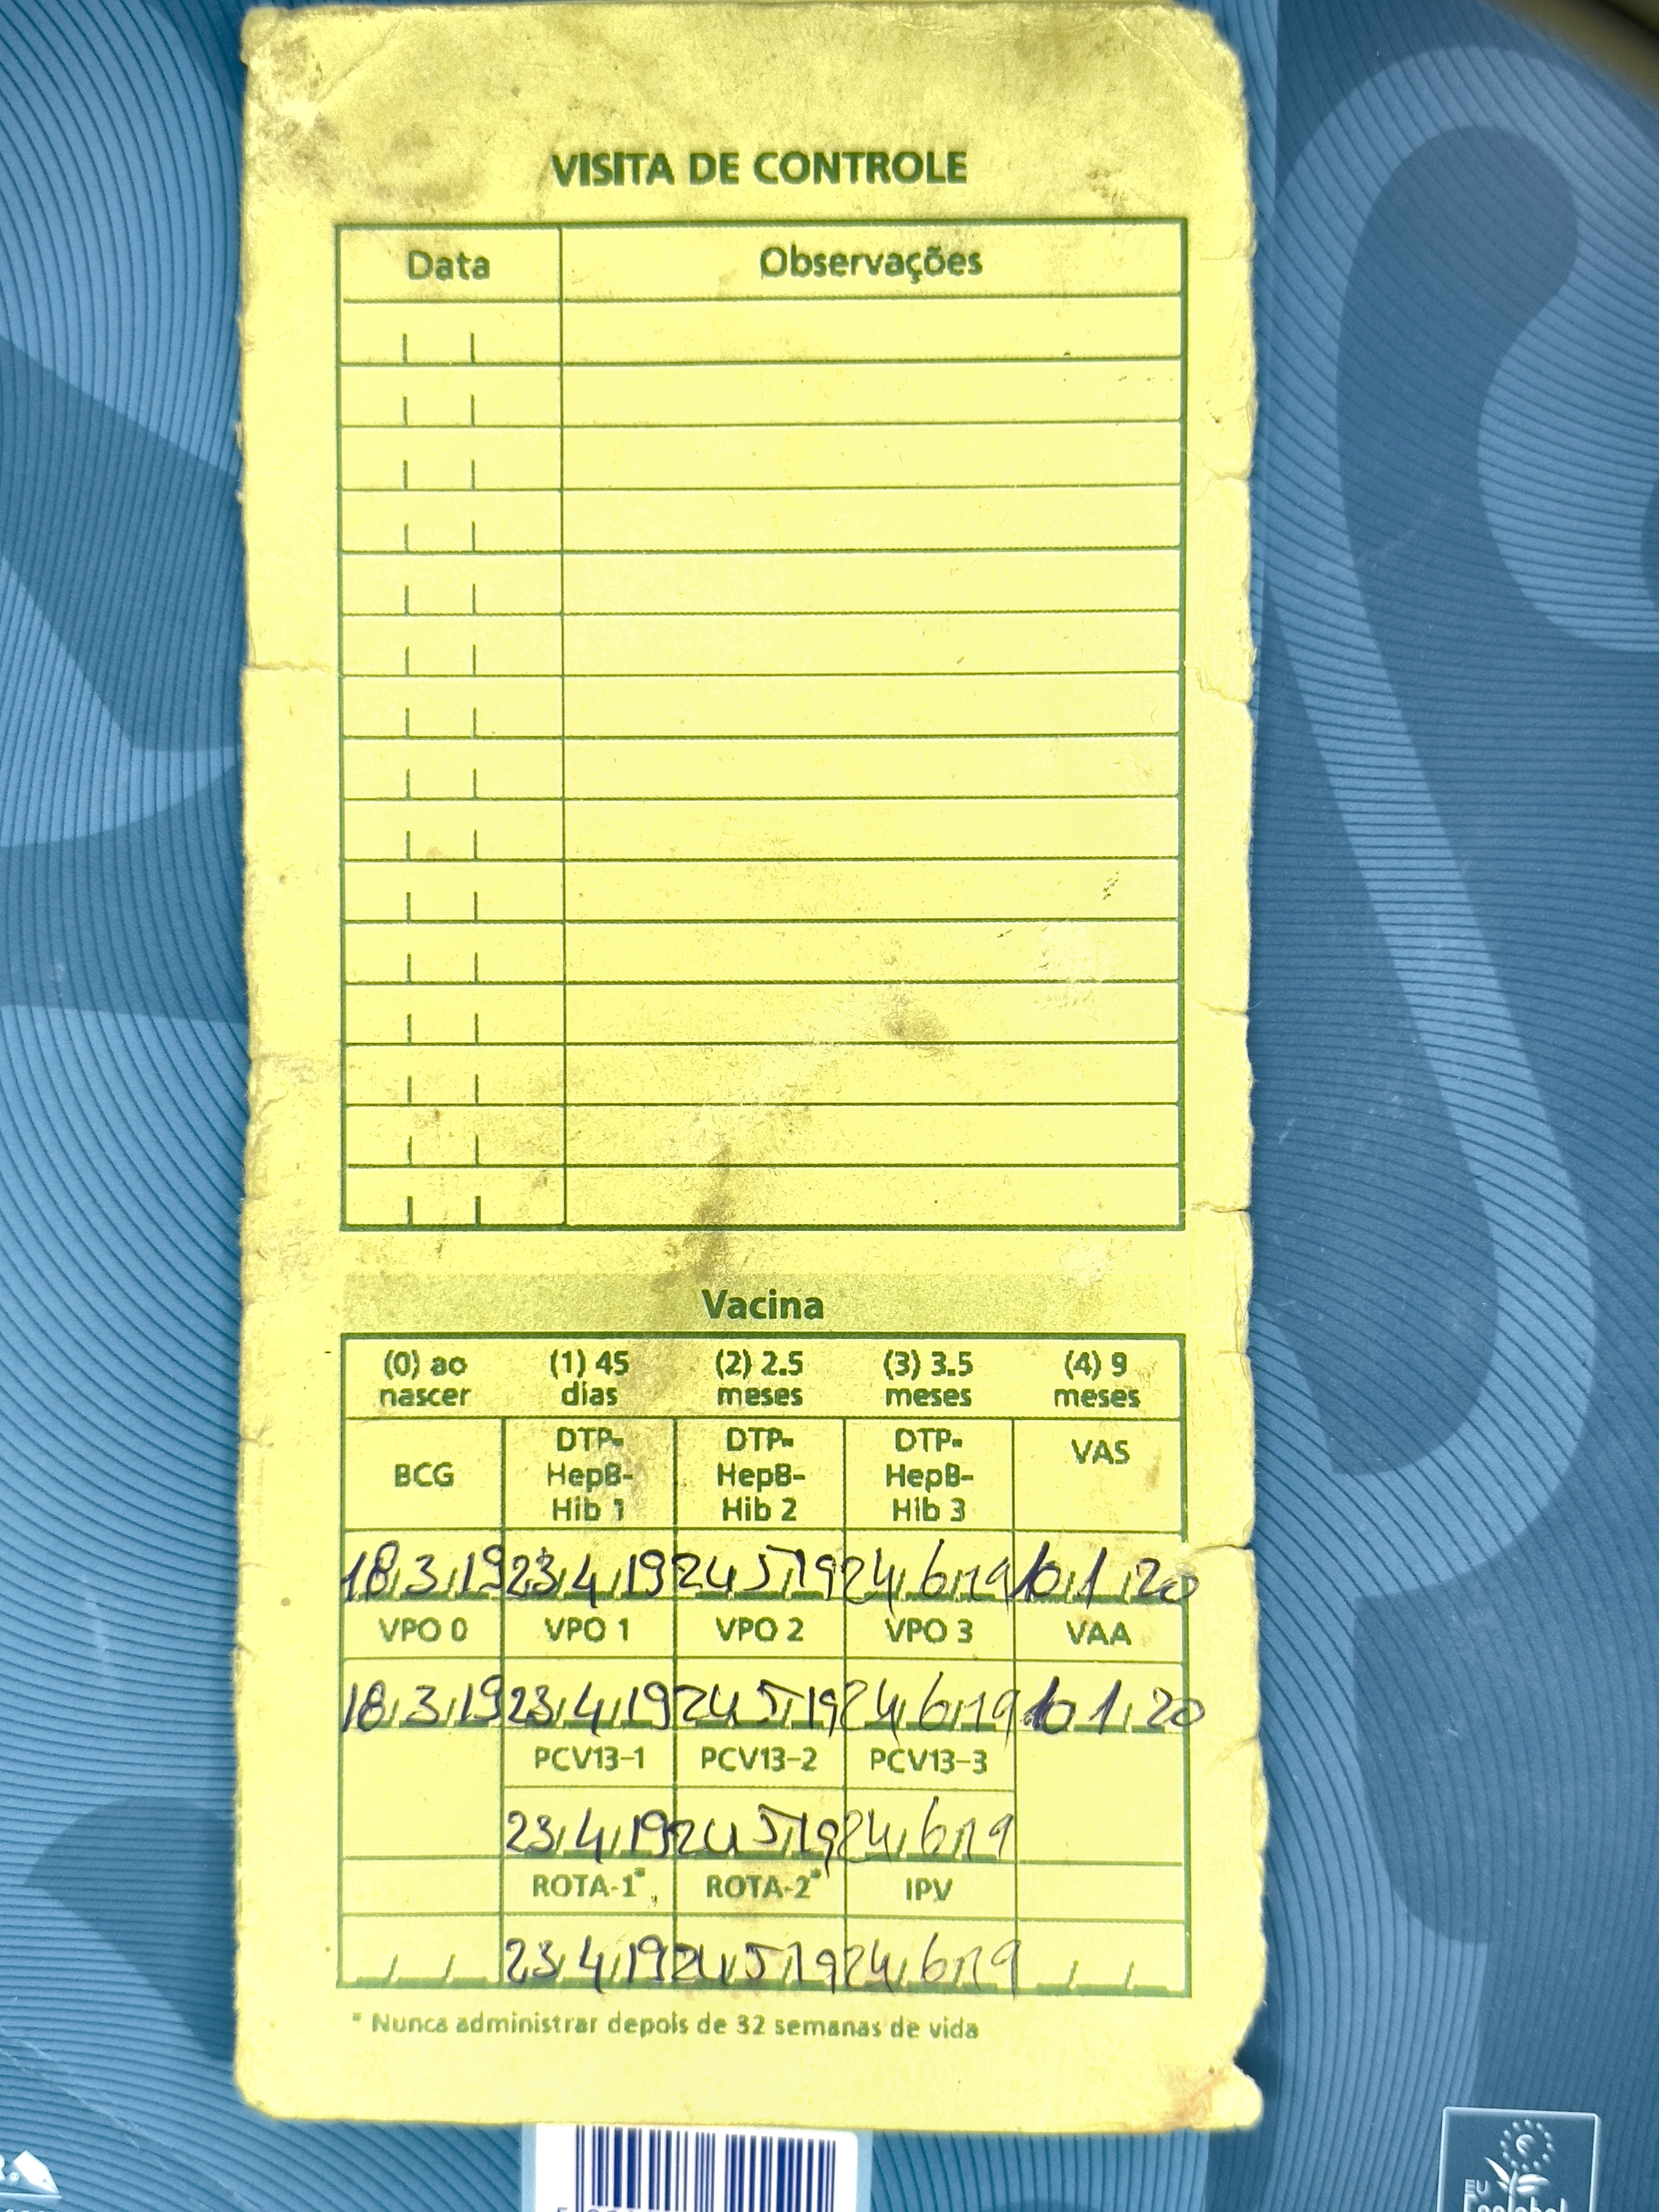 VISITA DE CONTROLE
Data Observações
Vacina
(0) ao nascer (1) 45 dias (2) 2.5 meses (3) 3.5 meses (4) 9 meses
BCG DTP-HepB-Hib 1 DTP-HepB-Hib 2 DTP-HepB-Hib 3 VAS
18/3/19 23/4/19 24/5/19 24/6/19 10/1/20
VPO 0 VPO 1 VPO 2 VPO 3 VAA
18/3/19 23/4/19 24/5/19 24/6/19 10/1/20
PCV13-1 PCV13-2 PCV13-3
23/4/19 24/5/19 24/6/19
ROTA-1* ROTA-2* IPV
23/4/19 24/5/19 24/6/19
* Nunca administrar depois de 32 semanas de vida
EU